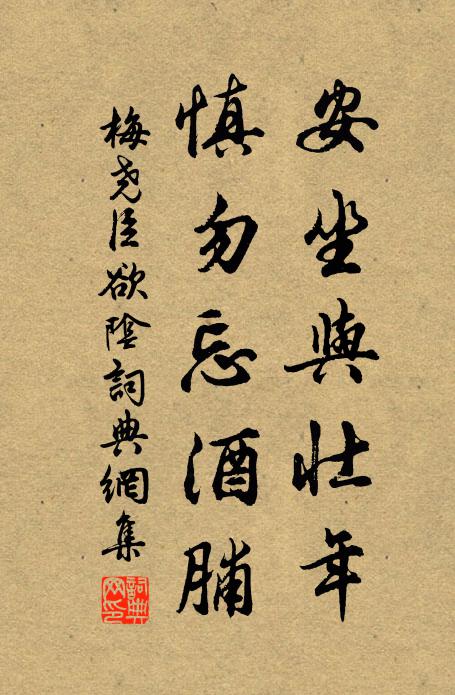 安坐與壯年
慎勿忘酒脯
梅堯臣欲陰詞典網集
詞典網印